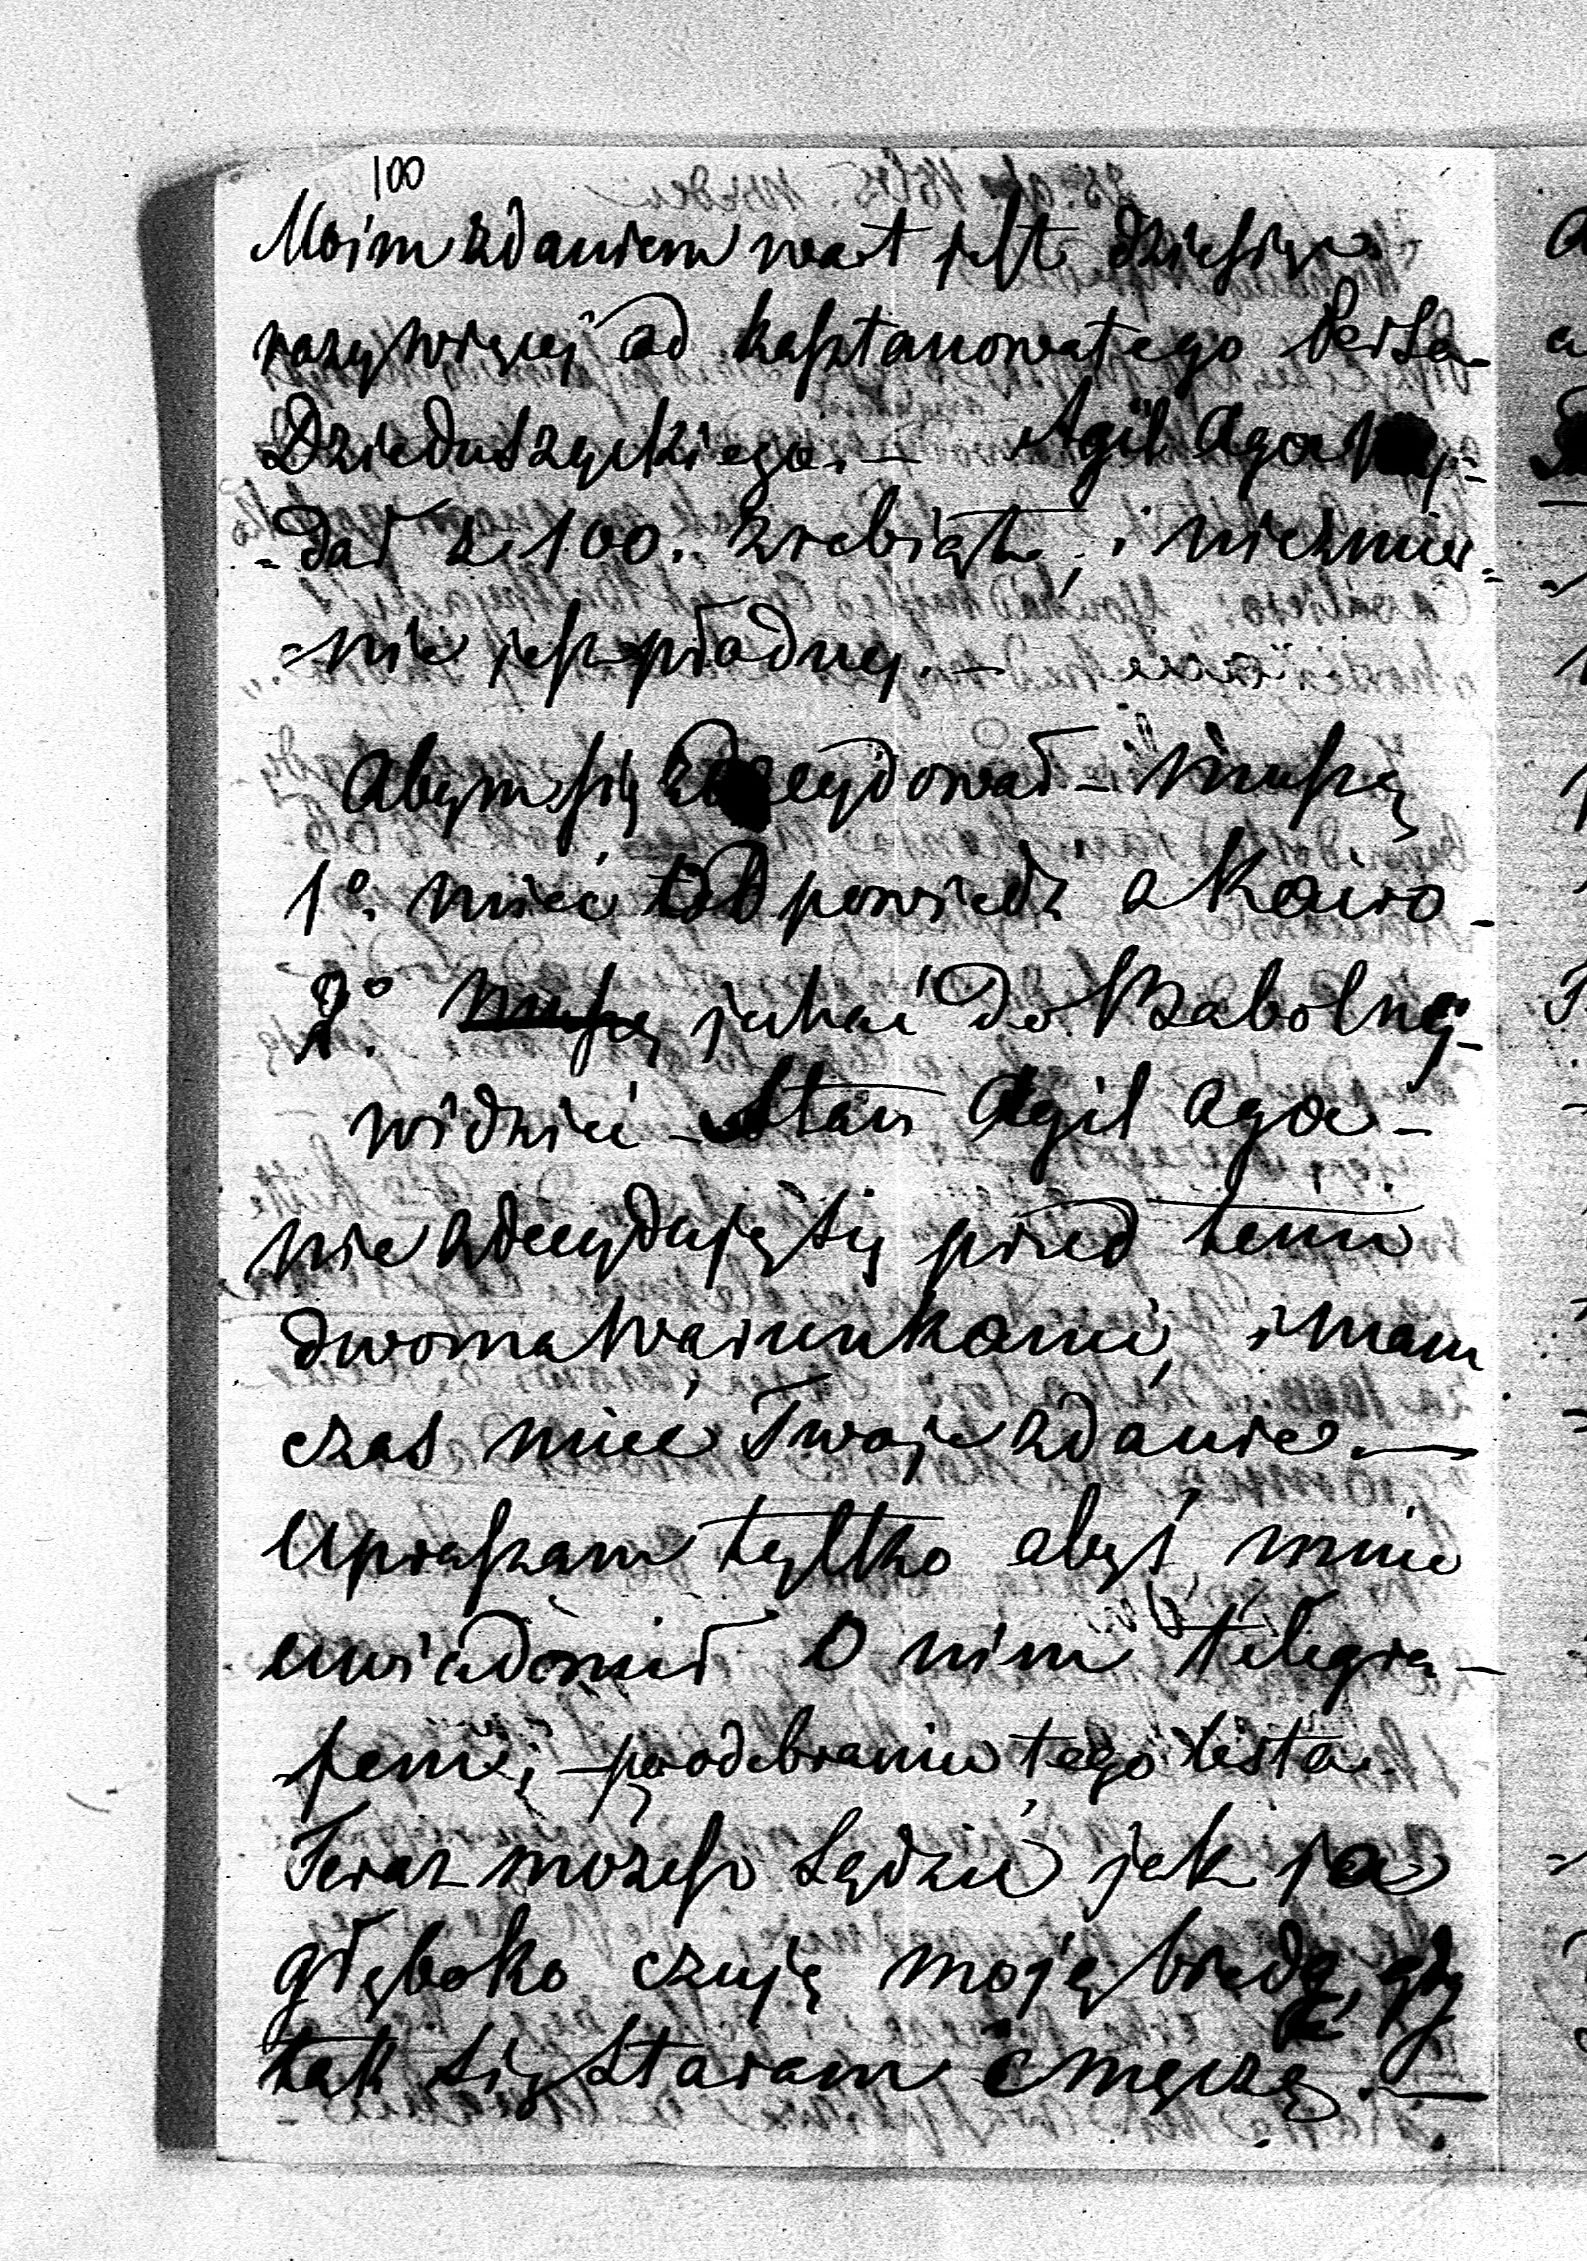 100
Moim zdaniem wart jest dziesięć
razy więcej od kasztanowatego Persa
Dzieduszyckiego. — Agil Aga wy=
=dał ze 100. źrebiąt, i niezmier=
=nie jest płodny. —
Abym się zdecydował — muszę
1º. mieć odpowiedź z Kairo —
2º. muszę jechać do Babolny —
widzieć — Stan Agil Aga —
nie zdecyduję się przed temi
dwoma warunkami, i mam
czas mieć Twoje zdanie. —
Upraszam tylko abyś mnie
uwiadomił o nim telegra—
fem, — po odebraniu tego listu.
Teraz możesz sądzić jak ja
głęboko czuję moją biedę, gdy
tak się staram i męczę. —